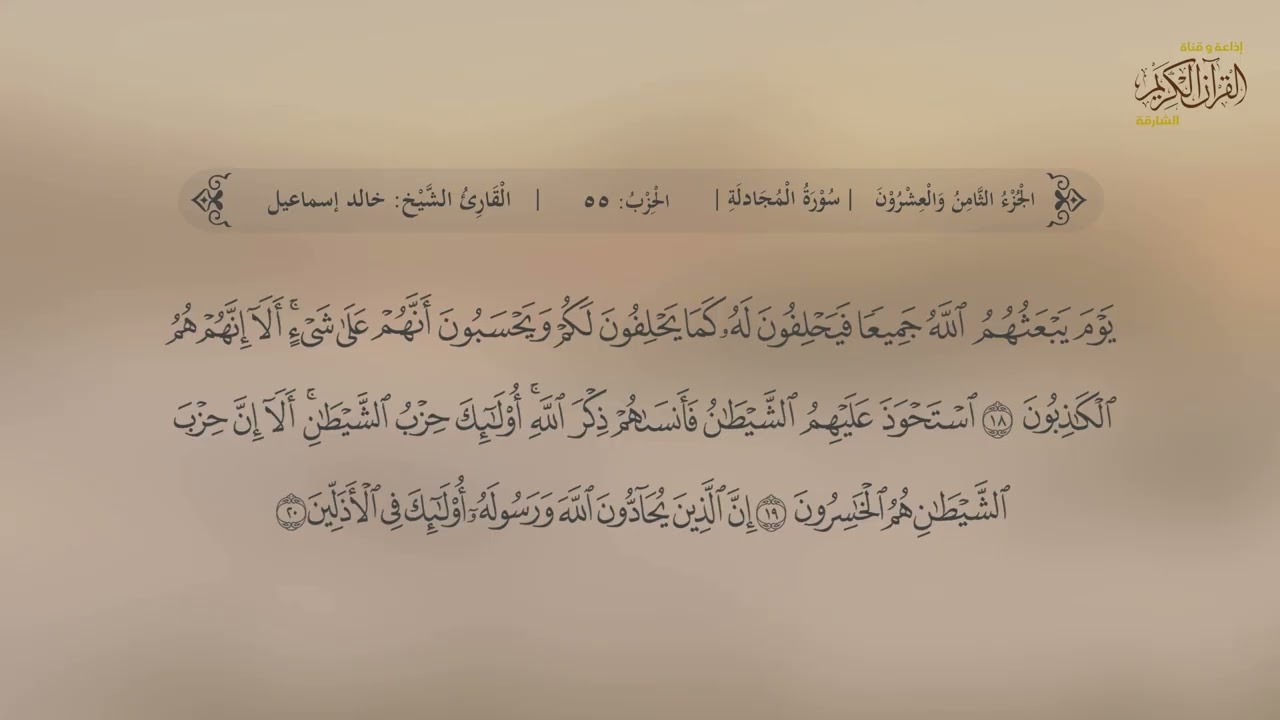 إذاعة و قناة
القرآن الكريم
الشارقة
الْجُزْءُ الثَّامِنُ وَالْعِشْرُوْنَ | سُوْرَةُ الْمُجَادلَةِ | الْحِزْبُ: ٥٥ | الْقَارِئُ الشَّيْخ: خالد إسماعيل
يَوْمَ يَبْعَثُهُمُ ٱللَّهُ جَمِيعًا فَيَحْلِفُونَ لَهُۥ كَمَا يَحْلِفُونَ لَكُمْ وَيَحْسَبُونَ أَنَّهُمْ عَلَىٰ شَىْءٍ ۚ أَلَآ إِنَّهُمْ هُمُ
ٱلْكَٰذِبُونَ ١٨ ٱسْتَحْوَذَ عَلَيْهِمُ ٱلشَّيْطَٰنُ فَأَنسَىٰهُمْ ذِكْرَ ٱللَّهِ ۚ أُو۟لَٰٓئِكَ حِزْبُ ٱلشَّيْطَٰنِ ۚ أَلَآ إِنَّ حِزْبَ
ٱلشَّيْطَٰنِ هُمُ ٱلْخَٰسِرُونَ ١٩ إِنَّ ٱلَّذِينَ يُحَآدُّونَ ٱللَّهَ وَرَسُولَهُۥٓ أُو۟لَٰٓئِكَ فِى ٱلْأَذَلِّينَ ٢٠